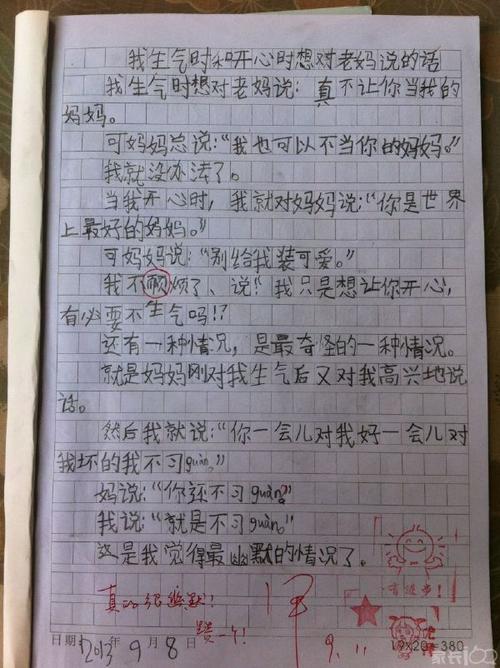 我生气时和开心时想对老妈说的话
我生气时想对老妈说：真不让你当我的
妈妈。
可妈妈总说：“我也可以不当你的妈妈。”
我就没办法了。
当我开心时，我就对妈妈说：“你是世界
上最好的妈妈。”
可妈妈说：“别给我装可爱。”
我不烦了、说：“我只是想让你开心，
有必要不生气吗!?
还有一种情况，是最奇怪的一种情况。
就是妈妈刚对我生气后又对我高兴地说
话。
然后我就说：“你一会儿对我好一会儿对
我坏的我不习guàn。”
妈说：“你还不习guàn。”
我说：“就是不习guàn。”
这是我觉得最幽默的情况了。
真的很幽默！
赞一个！
有进步！
9.11
日期 2013年9月8日
19×20=380